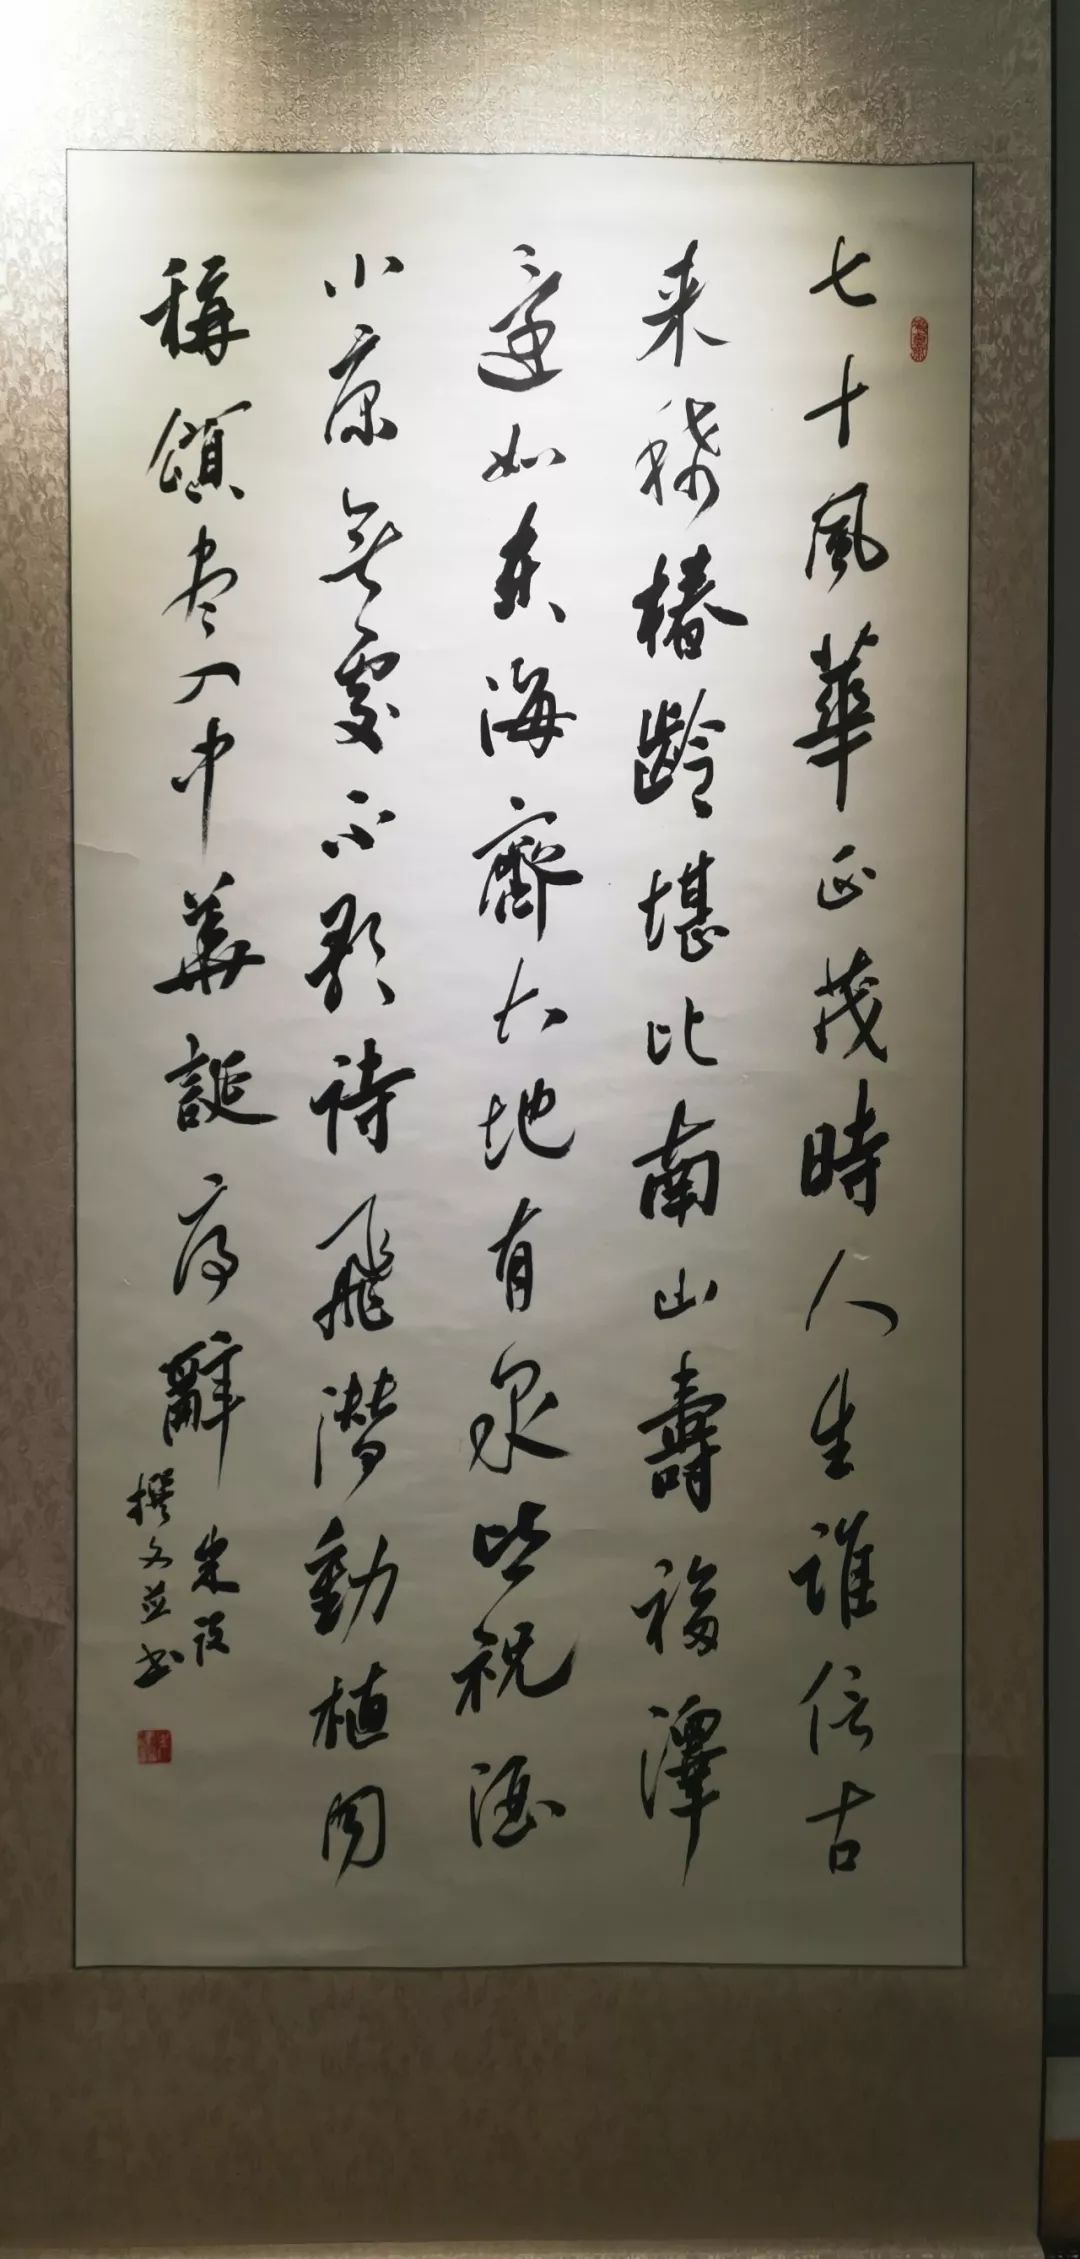 七十風華正茂時人生誰信古
来稀椿齡堪比南山壽福澤
如东海齊大地有泉皆祝酒
小康無處不歌詩飛潛動植同
稱頌尽入中華誕序辭
朱
撰文並书